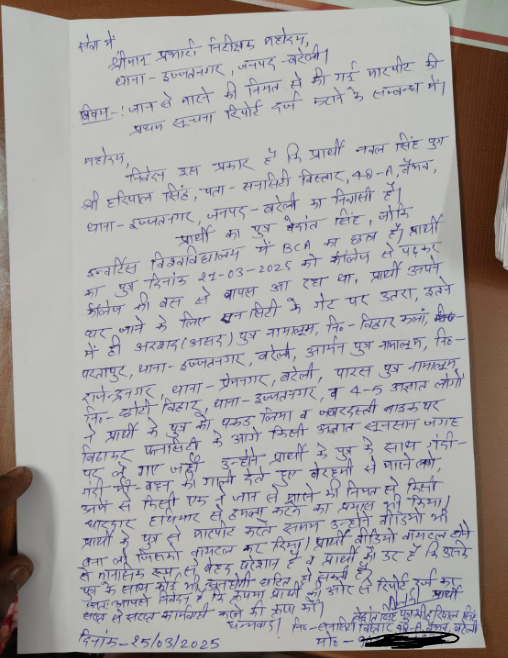 सेवा में
श्रीमान प्रभारी निरीक्षक महोदय,
थाना - इज्जतनगर, जनपद - बरेली।
विषय -: जान से मारने की नियत से की गई मारपीट की
प्रथम सूचना रिपोर्ट दर्ज कराने के सम्बन्ध में।
महोदय,
निवेदन इस प्रकार है कि प्रार्थी नवल सिंह पुत्र
श्री हरिपाल सिंह, पता - सनसिटी विस्तार, 48-A, वैभव,
थाना - इज्जतनगर, जनपद - बरेली का निवासी है।
प्रार्थी का पुत्र वेदांत सिंह, जोकि
इन्वर्टिस विश्वविद्यालय में BCA का छात्र है। प्रार्थी
का पुत्र दिनांक 21-03-2025 को कॉलेज से पढ़कर
कॉलेज की बस से वापस आ रहा था, प्रार्थी अपने
घर जाने के लिए सनसिटी के गेट पर उतरा, इतने
में ही अरशद (असद) पुत्र नामालूम, नि०- बिहार कलां,
परतापुर, थाना - इज्जतनगर, बरेली, आर्मन पुत्र नामालूम, नि०-
राजेन्द्रनगर, थाना - प्रेमनगर, बरेली, पारस पुत्र नामालूम
नि०- छोटी बिहार, थाना - इज्जतनगर, व 4-5 अज्ञात लोगों
ने प्रार्थी के पुत्र को पकड़ लिया व जबरदस्ती बाइक पर
बिठाकर सनसिटी के आगे किसी अज्ञात सुनसान जगह
पर ले गए जहाँ उन्होंने प्रार्थी के पुत्र के साथ गंदी-
गंदी माँ-बहन की गाली देते हुए बेरहमी से मारने लगे,
उनमें से किसी एक ने जान से मारने की नियत से किसी
धारदार हथियार से हमला करने का प्रयास भी किया।
प्रार्थी के पुत्र से मारपीट करते समय उन्होंने वीडियो भी
बना ली जिसको वायरल कर दिया। प्रार्थी वीडियो वायरल होने
से मानसिक रूप से बेहद परेशान है व प्रार्थी को डर है कि उसके
पुत्र के साथ कोई भी अनहोनी घटित हो सकती है।
अतः आपसे निवेदन है कि कृपया प्रार्थी की ओर से रिपोर्ट दर्ज कर
सख्त से सख्त कार्यवाही करने की कृपा करें।
प्रार्थी
धन्यवाद।
सिंह पुत्र श्री हरिपाल सिंह
नि०- सनसिटी विस्तार 48-A, वैभव, बरेली
दिनांक - 25/03/2025
मो०-